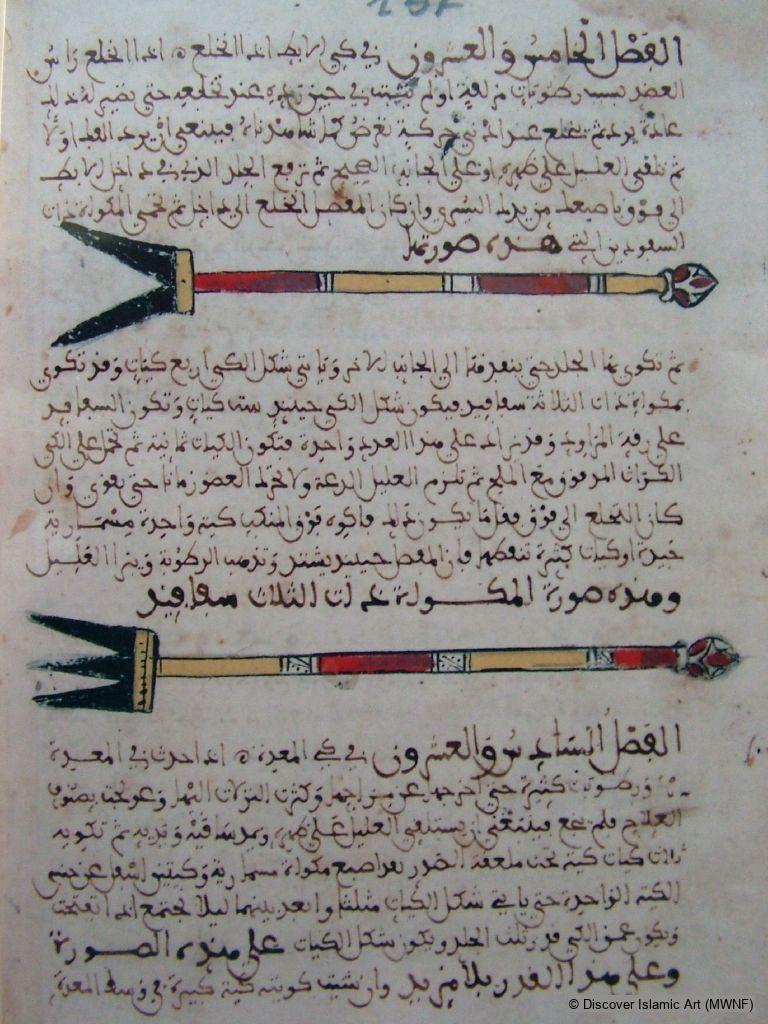 الفصل الخامس والعشرون في كي الابط اذا انخلع ه اذا انخلع راس
العضد بسبب رطوبات مزلقة او لم يثبت في حين رده عند تخلعه حتى تصير له ذلك
عادة يرد ثم ينخلع عند ادنى حركة تعرض كما شاهدناه فينبغي ان يرد الفك اولا
ثم يلقى العليل على ظهره او على الجانب الصحيح ثم ترفع الجلد الذي في داخل الابط
الى فوق باصبعك من يدك اليسرى وان كان المفصل انخلع الى داخل ثم تحمى المكواة ذات
السفودين التي هذه صورتها
ثم تكوى بها الجلد حتى ينفذ الى الجانب الاخر وياتي شكل الكي اربع كيات وقد تكوى
بمكواة ذات الثلاثة سفافيد فيكون شكل الكي حينئذ ست كيات وتكون السفافيد
على رقة المراود وقد يزاد على هذا العدد واحدة فتكون الكيات ثمانية ثم تحمل على الكي
الكراث المدقوق مع الملح ثم تلزم العليل الدعة ولا يحرك العضو زمانا حتى يقوى وان
كان التخلع الى فوق وقلما يكون ذلك فاكوه فوق المنكب كية واحدة مسمارية
جيدة او كيات كثيرة فان المفصل حينئذ يشتد وتذهب الرطوبة ويبرا العليل
وهذه صورة المكواة ذات الثلاث سفافيد
الفصل السادس والعشرون في كي المعدة ه اذا حدث في المعدة
ورطوبات كثيرة حتى اخرجها عن مزاجها وكثرت النزلات اليها وعولجت بضروب
العلاج فلم ينجع فينبغي ان يستلقي العليل على ظهره ويمد ساقيه ويديه ثم تكويه
ثلاث كيات كية تحت ملعقة الصدر بقدر اصبع مكواة مسمارية وكيتين اسفل عن جنبي
الكية الواحدة حتى ياتي شكل الكيات مثلثا وابعد بينهما ليلا تجتمع اذا تفتحت
ويكون عمق الكي قدر ثلث الجلد ويكون شكل الكيات على هذه الصورة
وعلى هذا القدر بلا مزيد وان شيت كويته كية كبيرة في وسط المعدة
© Discover Islamic Art (MWNF)